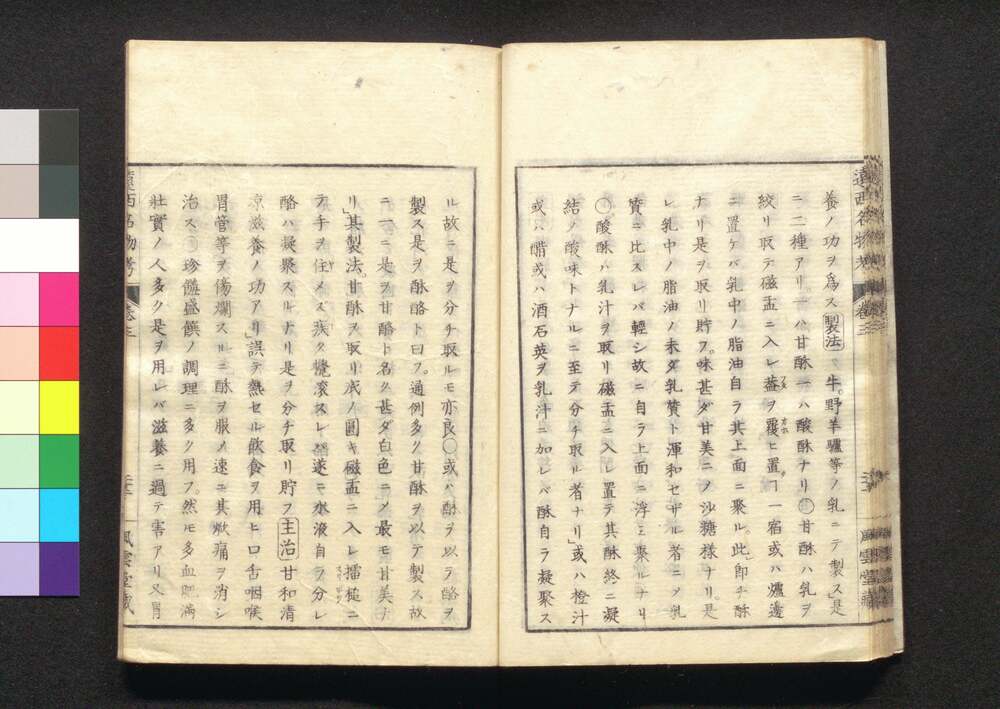 養ノ功ヲ爲ス 製法 牛。野羊驢等ノ乳ニテ製ス是
ニ二種アリ。一ハ甘酥一ハ酸酥ナリ〇甘酥ハ乳ヲ
絞リ取テ磁盂ニ入レ蓋ヲ覆ヒ置。ヿ一宿或ハ爐邊
ニ置ケバ乳中ノ脂油自ラ其上面ニ聚ル。此」即チ酥
ナリ是ヲ取リ貯フ。味甚ダ甘美ニノ沙糖様ナリ。是
レ乳中ノ脂油ノ未ダ乳質ト渾和セザル者ニノ乳
質ニ比スレバ輕シ故ニ自ラ上面ニ浮ミ聚ルナリ
〇酸酥ハ乳汁ヲ取リ磁盂ニ入レ置テ其酥終ニ凝
結ノ酸味トナルニ至テ分チ取ル者ナリ」或ハ橙汁
或ハ醋或ハ酒石英ヲ乳汁ニ加レバ酥自ラ凝聚ス
遠西名物考 卷三
風雲堂藏
ル故ニ是ヲ分チ取ルモ亦良〇或ハ酥ヲ以ラ酪ヲ
製ス是ヲ酥酪ト曰フ。通例多ク甘酥ヲ以テ製ス故
ニ一ニ是ヲ甘酪ト名ク甚ダ白色ニノ最モ甘美ナ
リ」其製法。甘酥ヲ取リ底ノ圓キ磁盂ニ入レ擂槌ニ
テ手ヲ住メズ疾ク攪滾スレ遂ニ水液自ラ分レ
酪ハ凝聚スルナリ是ヲ分チ取リ貯フ 主治 甘和清
凉滋養ノ功アリ」誤テ熱セル飲食ヲ用ヒ口舌咽喉
胃管等ヲ傷爛スルニ酥ヲ服ノ速ニ其焮痛ヲ消シ
治ス〇珍饈盛饌ノ調理ニ多ク用フ。然モ多血肥満
壯實ノ人多ク是ヲ用レバ滋養ニ過テ害アリ又胃
遠西名物考 卷三
風雲堂藏